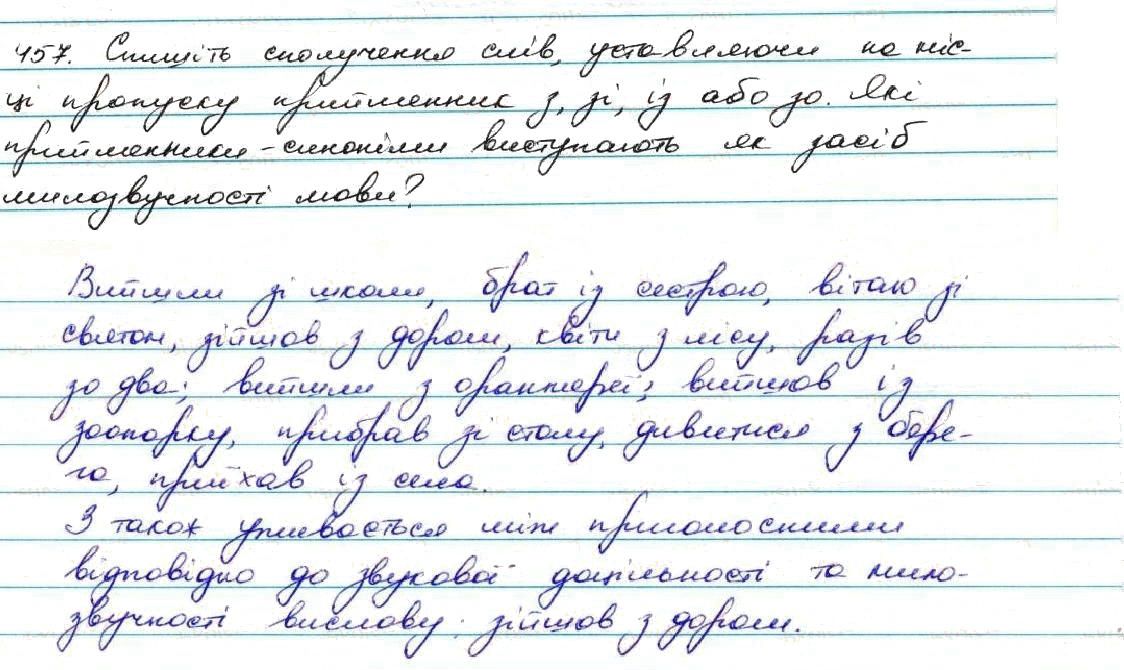 457. Спишіть сполучення слів, уставляючи на міс-
ці пропуску прийменник з, зі, із або зо. Які
прийменники-синоніми виступають як засіб
милозвучності мови?
Вийшли зі школи, брат із сестрою, вітаю зі
святом, зійшов з дороги, квіти з лісу, разів
зо два; вийшли з оранжереї; вийшов із
зоопарку, прибрав зі столу, дивитися з бере-
га, приїхав із села.
З також уживається між приголосними
відповідно до звукової доцільності та мило-
звучності вислову: зійшов з дороги.